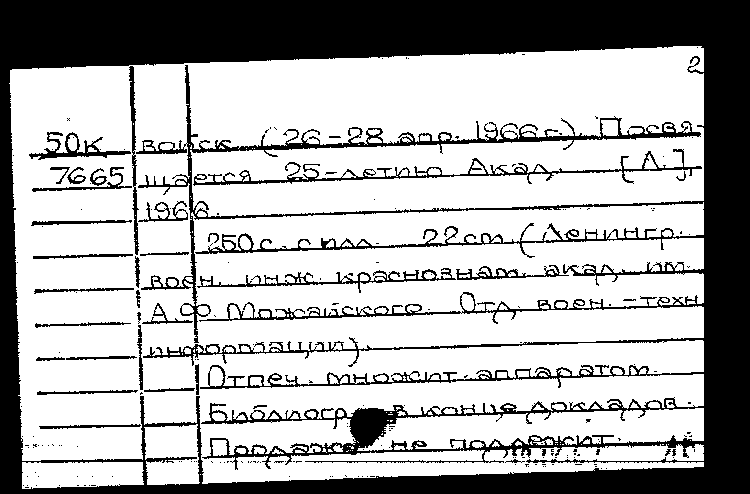 2
50К войск (26-28 апр. 1966 г.). Посвя-
7665 щается 25-летию Акад. [Л.],
1966.
250 с. с илл. 22 см. (Ленингр.
воен. инж. краснознам. акад. им.
А.Ф. Можайского. Отд. воен.-техн.
информации).
Отпеч. множит. аппаратом.
Библиогр. в конце докладов.
Продаже не подлежит.